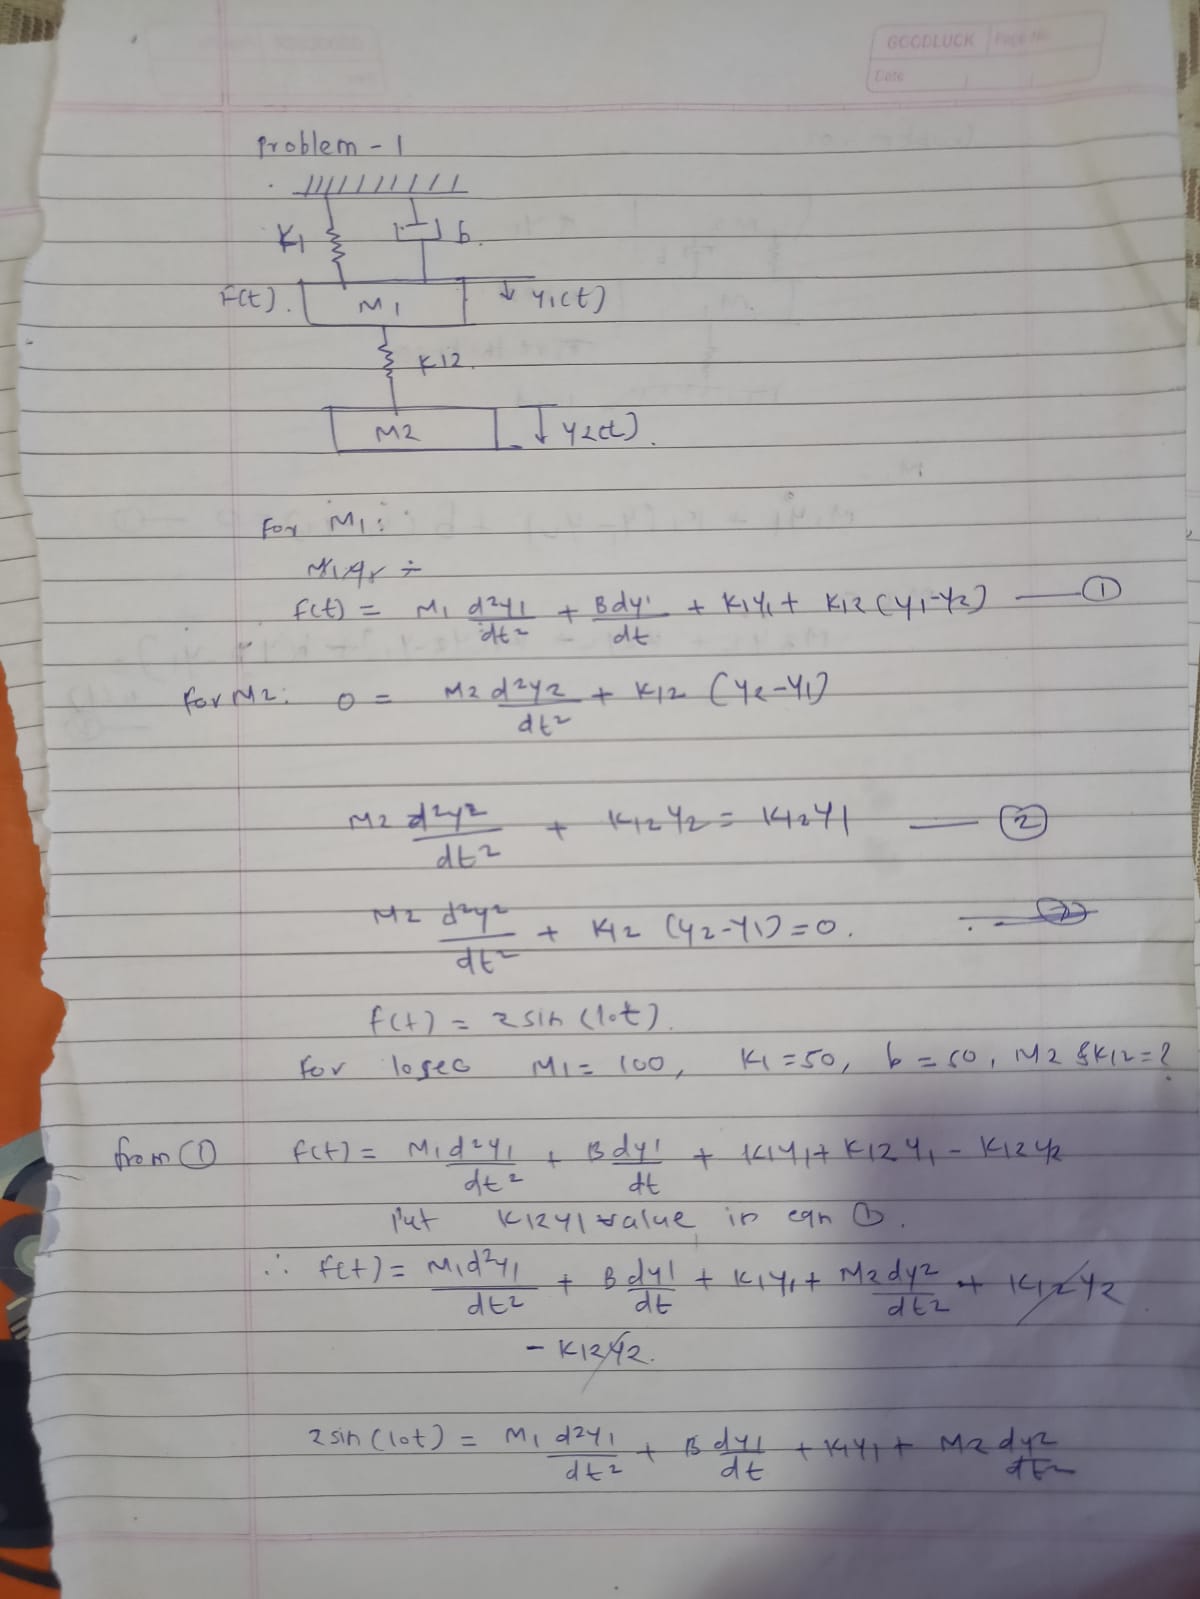 GOODLUCK Page No.
Date
Problem - 1
K1
b.
F(t).
M1
y1(t)
K12.
M2
y2(t).
For M1:
f(t) = M1 d²y1/dt² + Bdy1/dt + K1y1 + K12 (y1-y2) — ①
for M2: 0 = M2 d²y2/dt² + K12 (y2-y1)
M2 d²y2/dt² + K12 y2 = K12 y1 — ②
M2 d²y2/dt² + K12 (y2-y1) = 0.
f(t) = 2 sin (10t).
for 10 sec M1 = 100, K1 = 50, b = 50, M2 & K12 = ?
from ① f(t) = M1d²y1/dt² + B dy1/dt + K1y1 + K12 y1 - K12 y2
Put K12y1 value in eqn ①.
∴ f(t) = M1d²y1/dt² + B dy1/dt + K1y1 + M2 dy2/dt2 + K12y2
- K12y2.
2 sin (10t) = M1 d2y1/dt2 + B dy1/dt + K1y1 + M2 dy2/dt2